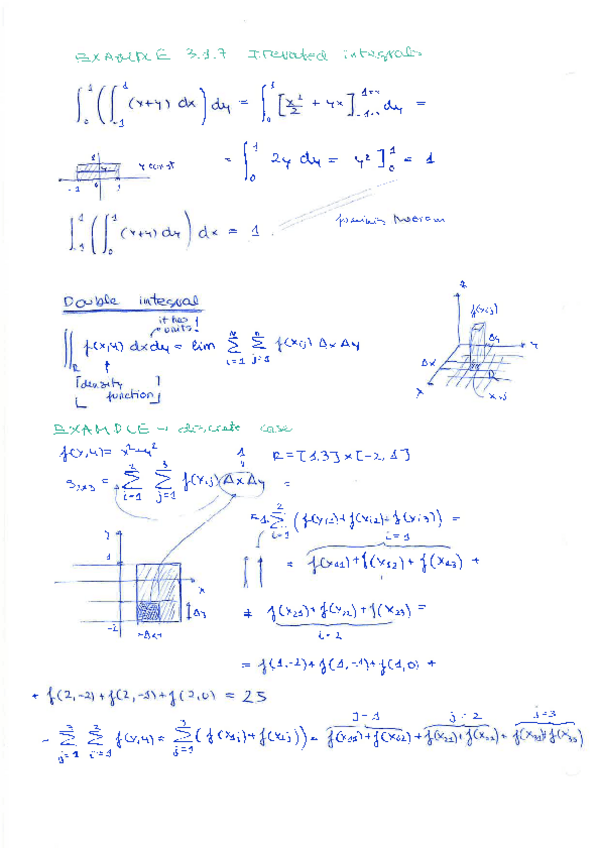 EXAMPLE 3.1.7 Iterated integrals
∫₀¹ (∫₋₁¹ (x+y) dx) dy = ∫₀¹ [x²/2 + yx]₋₁¹ dy =
y const = ∫₀¹ 2y dy = y²]₀¹ = 1
∫₋₁¹ (∫₀¹ (x+y) dy) dx = 1
Fubini's theorem
Double integral
it has units!
∬_R f(x,y) dxdy = lim Σ_{i=1}^{n} Σ_{j=1}^{n} f(xij) Δx Δy
[density function]
z
f(xij)
Δy
y
Δx
R
x
xij
EXAMPLE → discrete case
f(x,y) = x²-y² R = [1,3] x [-2, 1]
S₂ₓ₃ = Σ_{i=1}^{2} Σ_{j=1}^{3} f(xij) Δx Δy =
1
= 1·Σ_{i=1}^{2} (f(xi1)+f(xi2)+f(xi3)) =
i=1
= f(x11)+f(x12)+f(x13) +
+ f(x21)+f(x22)+f(x23) =
i=2
y
1
x
Δy
-2
= f(1,-2)+f(1,-1)+f(1,0) +
+ f(2,-2)+f(2,-1)+f(2,0) = 25
j=1 j=2 j=3
- Σ_{j=1}^{3} Σ_{i=1}^{2} f(x,y) = Σ_{j=1}^{3} (f(x1j)+f(x2j)) =